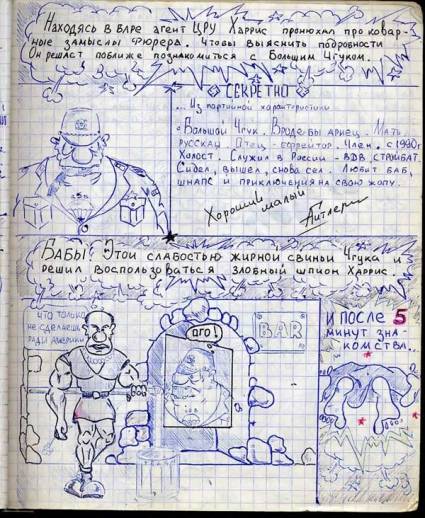 Находясь в баре агент ЦРУ Харрис пронюхал про ковар-
ные замыслы Фюрера. Чтобы выяснить подробности
Он решает поближе познакомиться с Большим Чгуком.
СЕКРЕТНО
... Из партийной характеристики
"Большой Чгук. Вроде бы ариец. Мать
русская. Отец - ефрейтор. Член. с 1990г
Холост. Служил в России - ВДВ стройбат.
Сидел, вышел, снова сел. Любит баб,
шнапс и приключения на свою жопу.
Хороший
малый
Гитлер
Бабы! Этой слабостью жирной свиньи Чгука и
решил воспользоваться злобный шпион Харрис.
ЧТО ТОЛЬКО
НЕ СДЕЛАЕШЬ
РАДИ АМЕРИКИ
ОГО!
BAR
И ПОСЛЕ 5
МИНУТ ЗНА-
КОМСТВА...